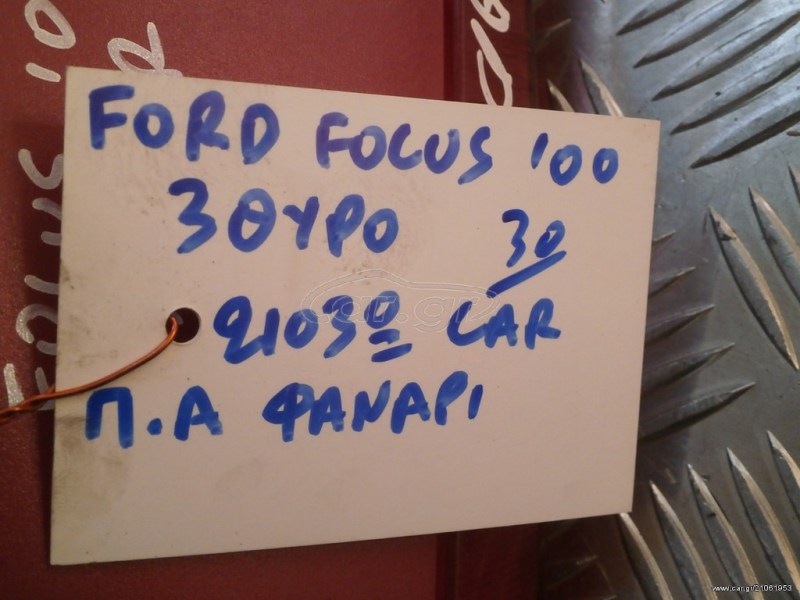 FORD FOCUS '00
3ΘΥΡΟ 30
2103º CAR
Π.Α ΦΑΝΑΡΙ
car.gr
www.car.gr/21061953